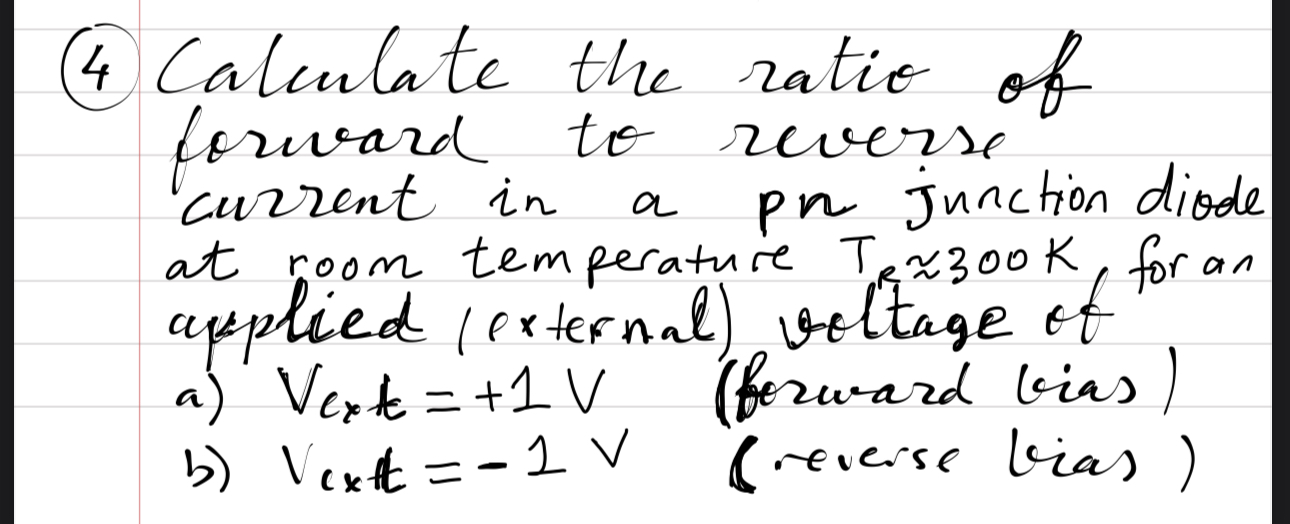 ④ Calculate the ratio of
forward to reverse
current in a pn junction diode
at room temperature T_R≈300K, for an
applied (external) voltage of
a) Vext = +1 V (forward bias)
b) Vext = -1 V (reverse bias)